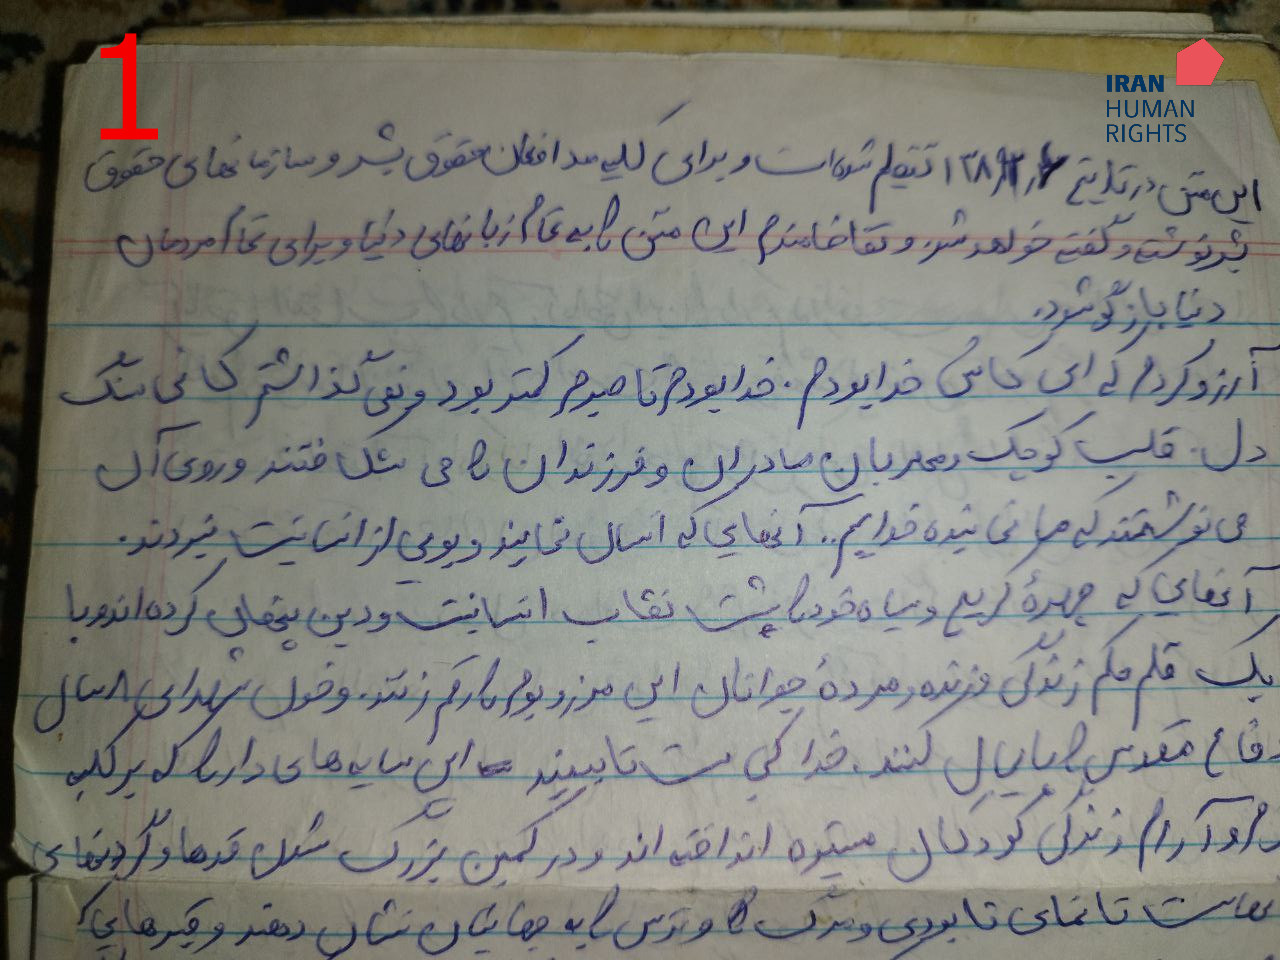 1
IRAN
HUMAN
RIGHTS
این متن در تاریخ تنظیم شده است و برای کلیه مدافعان حقوق بشر و سازمانهای حقوق
بشر نوشته و گفته خواهد شد. و تقاضامندم این متن را به تمام زبانهای دنیا و برای تمام مردمان
دنیا بازگو شود.
آرزو کردم که ای کاش خدا بودم. خدا بودم تا صبرم کمتر بود و نمی گذاشتم کسانی سنگ
دل. قلب کوچک و مهربان مادران و فرزندان را می شکافتند و روی آن
می نوشتند که ما نماینده خداییم.. آنهایی که انسان نمایند و بویی از انسانیت نبردند.
آنهایی که چهرهٔ کریه و سیاه خود را پشت نقاب انسانیت و دین پنهان کرده اند و با
یک قلم حکم زندگی و زنده و مردهٔ جوانان این مرز و بوم را رقم زنند. و خون شهدای ۸ سال
دفاع مقدس را پایمال کنند. خدا کجاست تا ببیند این سایه های دار را که بر کلبه
آرام زندگی کودکان اند و در کمین بزرگ شدن قدها و گردنهای
ماست تا نمای نابودی و مرگ را و ترس را به جهانیان نشان دهند و قبرهایی